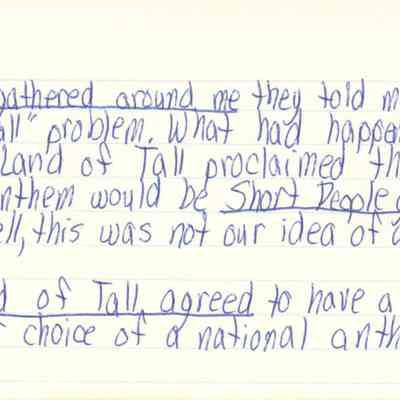 gathered around me they told m
all" problem. What had happen
Land of Tall proclaimed th
nthem would be Short People
ell, this was not our idea of a
d of Tall agreed to have a
choice of a national anth